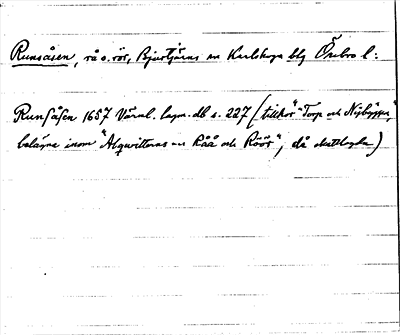 Runsåsen, rå o. rör, Bjurtjärns sn Karlskoga bg Örebro l:
Runsåsen 1657 Värml. lagm.db s. 227 ("tillhör" Torp och Nybygge",
belägne inom "Algwittorns Råå och Röör", då skattlagda)